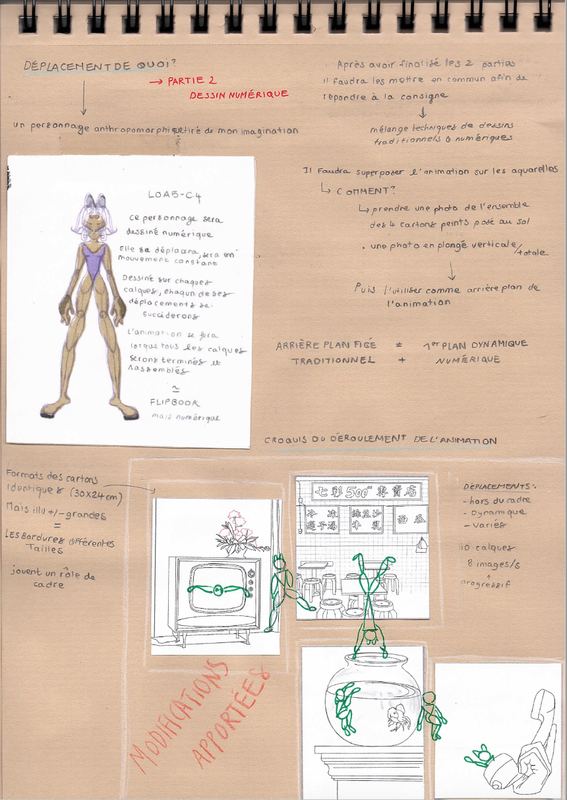 DÉPLACEMENT DE QUOI?
→ PARTIE 2
DESSIN NUMÉRIQUE
un personnage anthropomorphique tiré de mon imagination
LOA5-C4
Ce personnage sera
dessiné numérique
Elle se déplacera, sera en
mouvement constant
Dessiné sur chaques
calques, chacun de ses
déplacements se
succéderons
L'animation se fera
lorsque tous les calques
seront terminés et
rassemblés
FLIPBOOK
mais numérique
Après avoir finalisé les 2 parties
il faudra les mettre en commun afin de
répondre à la consigne
mélange techniques de dessins
traditionnels & numériques
Il faudra superposer l'animation sur les aquarelles
COMMENT?
prendre une photo de l'ensemble
des 4 cartons peints posé au sol
• une photo en plongé verticale/
totale
Puis l'utiliser comme arrière plan de
l'animation
ARRIÈRE PLAN FIGÉ = 1er PLAN DYNAMIQUE
TRADITIONNEL + NUMÉRIQUE
CROQUIS DU DÉROULEMENT DE L'ANIMATION
Formats des cartons
identiques (30x24cm)
Mais illu +/- grandes
=
Les bordures différentes
Tailles
jouent un rôle de
cadre
七彩500°° 專賣店
DÉPLACEMENTS:
- hors du cadre
- Dynamique
- variés
10 calques
8 images/s
progressif
MODIFICATIONS
APPORTÉES